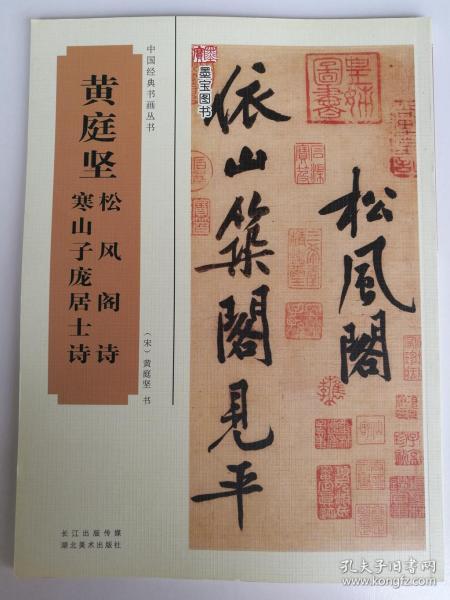 中国经典书画丛书
黄庭坚
松风阁诗
寒山子庞居士诗
（宋）黄庭坚 书
长江出版传媒
湖北美术出版社
墨宝图书
松風閣
依山築閣見平
皇姊圖書
孔夫子旧书网
www.kongfz.com